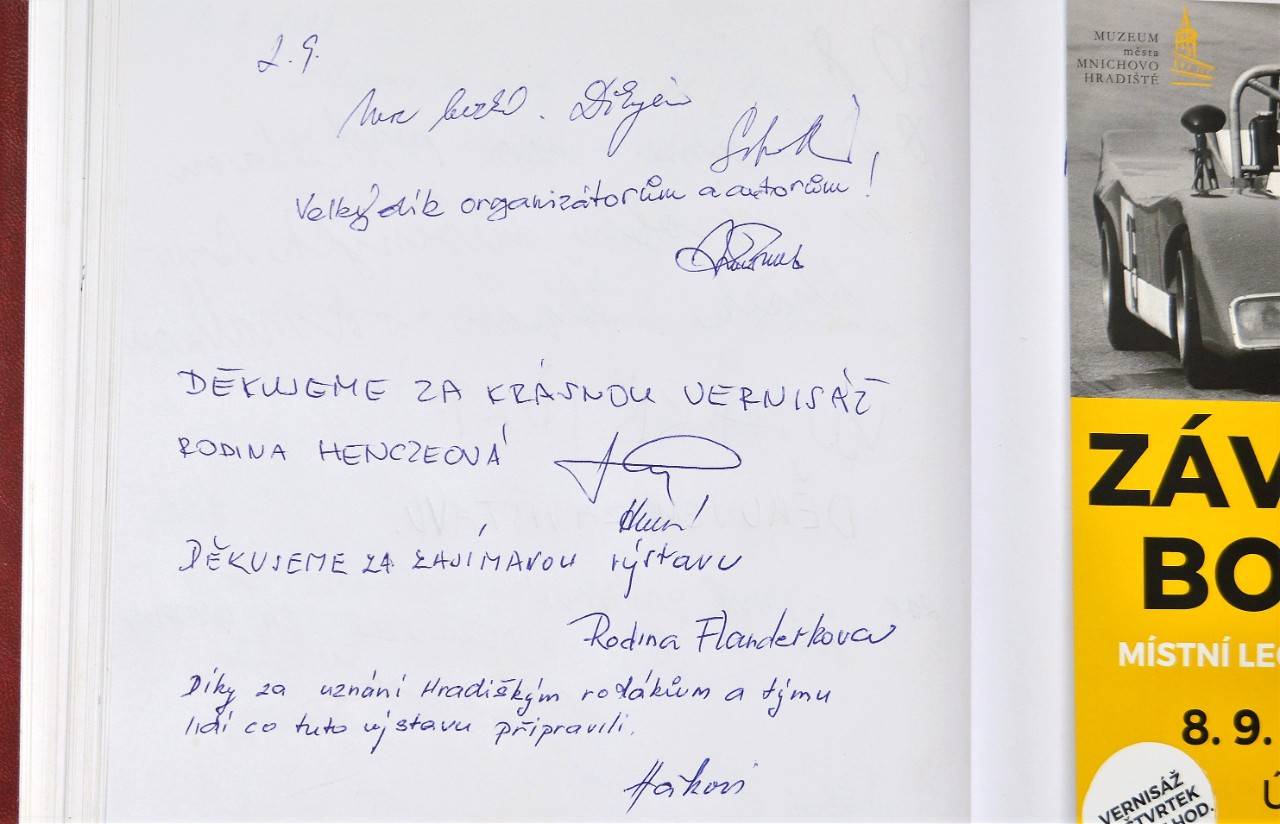 2. 9.
Moc hezké. Děkujeme
Velký dík organizátorům a autorům!
DĚKUJEME ZA KRÁSNOU VERNISÁŽ
RODINA HENCZEOVÁ
DĚKUJEME ZA ZAJÍMAVOU výstavu
Rodina Flanderkova
Díky za uznání Hradišťkým rodákům a týmu
lidí co tuto výstavu připravili.
Hátkovi
MUZEUM
města
MNICHOVO
HRADIŠTĚ
ZÁV
BO
MÍSTNÍ LEG
8. 9.
VERNISÁŽ
ČTVRTEK
HOD.